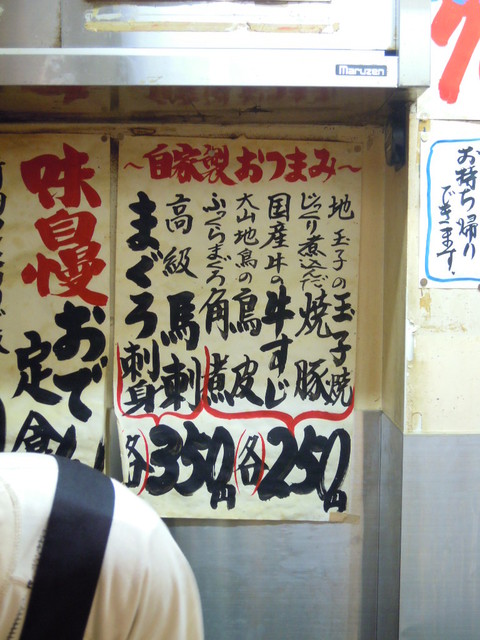 Maruzen
～自家製おつまみ～
地玉子の玉子焼
じっくり煮込んだ焼豚
国産牛の牛すじ
大山地鳥の鳥皮
ふっくらまぐろ角煮
各250円
高級馬刺
まぐろ刺身
各350円
お持ち帰り
できます。
味自慢
おでん
定食